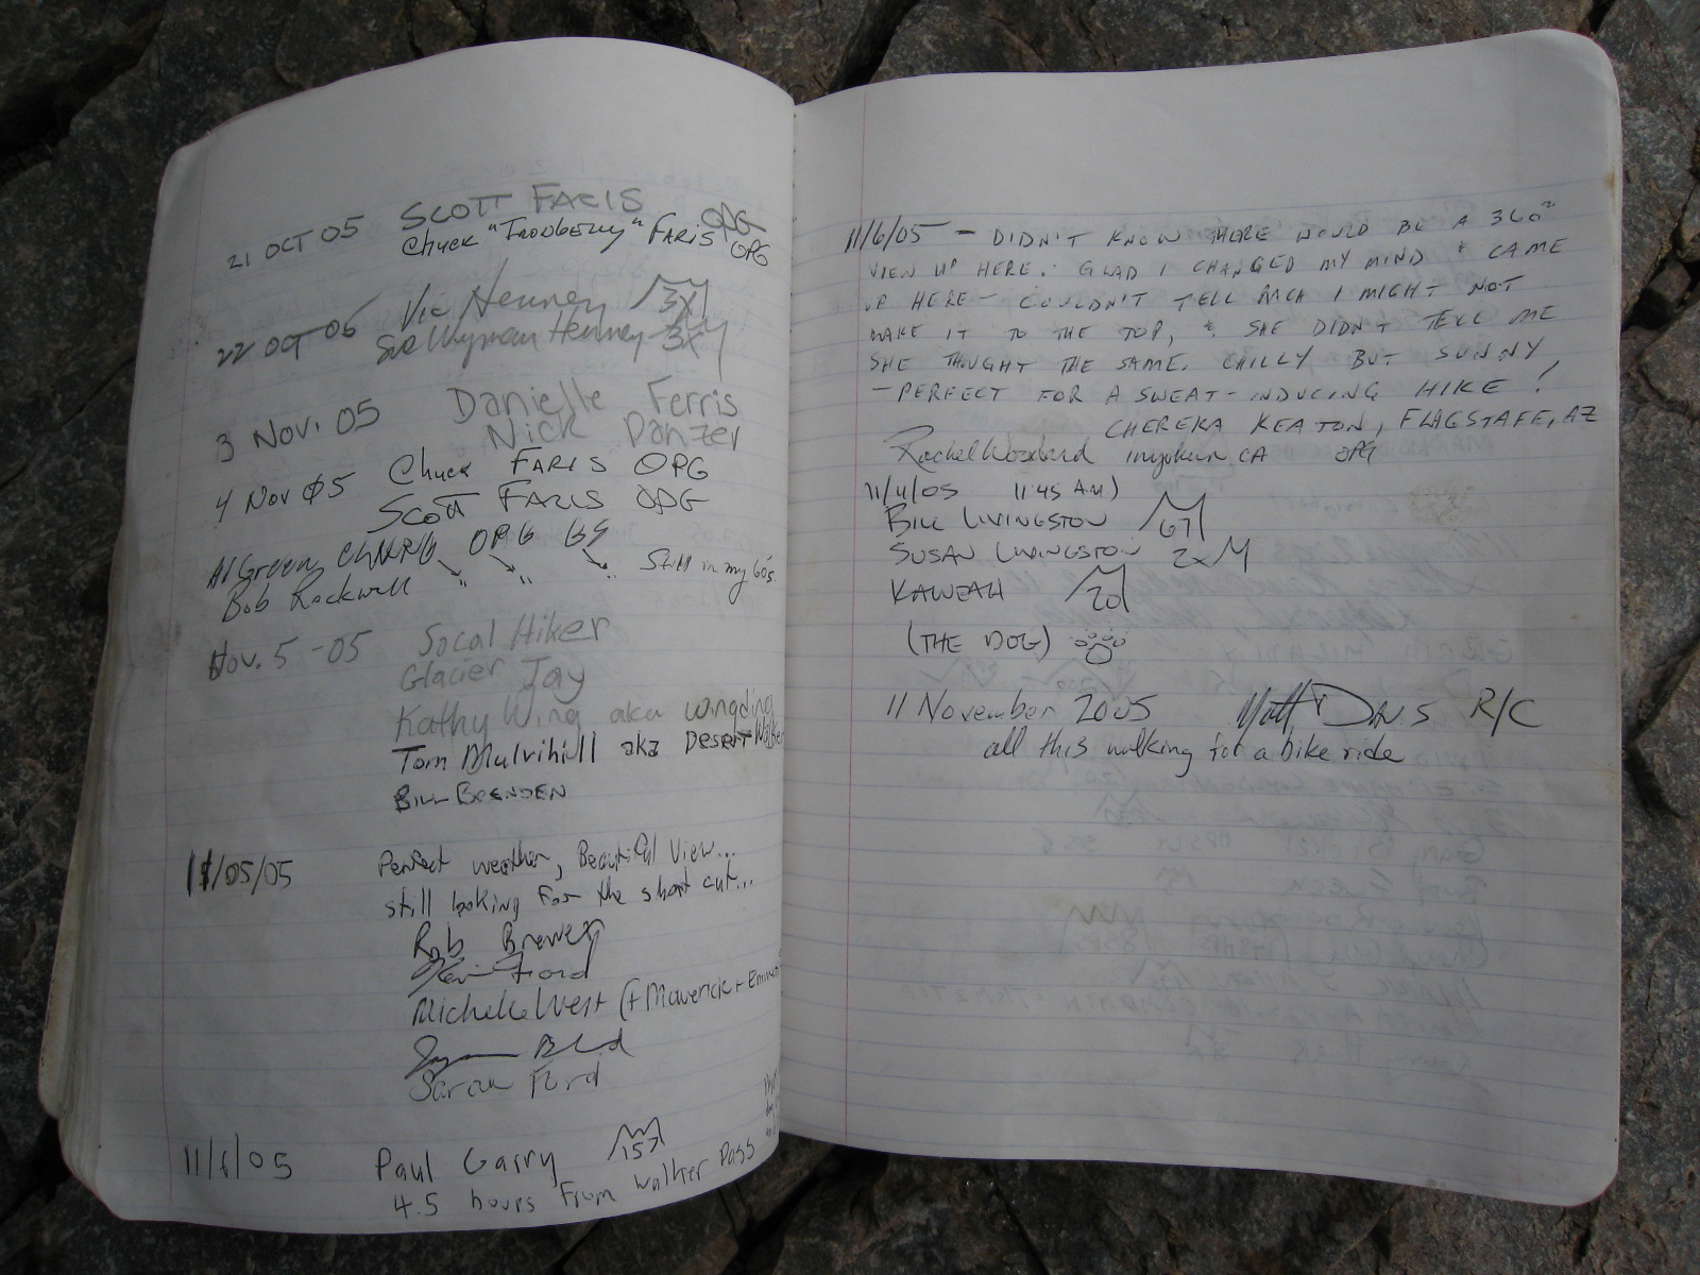 21 OCT 05 SCOTT FARIS OPG
Chuck " " FARIS OPG
22 OCT 05 Vic Henney 3X
Sue Wyman Henney 3X
3 Nov. 05 Danielle Ferris
Nick Danzer
4 Nov 05 Chuck FARIS OPG
SCOTT FARIS OPG
Al Green OPG GS
Bob Rockwell " " " Still in my 60s
Nov. 5 - 05 Socal Hiker
Glacier Jay
Kathy Wing aka wingding
Tom Mulvihill aka Desert Walker
BILL
11/05/05 Perfect weather, Beautiful View...
still looking for the short cut...
Rob Brewer
Kevin Ford
Michelle West (+ Maverick +
Sarah Ford
11/6/05 Paul Garry 157
4.5 hours from Walker Pass
11/6/05 - DIDN'T KNOW THERE WOULD BE A 360°
VIEW UP HERE. GLAD I CHANGED MY MIND & CAME
UP HERE - COULDN'T TELL RACH I MIGHT NOT
MAKE IT TO THE TOP, & SHE DIDN'T TELL ME
SHE THOUGHT THE SAME. CHILLY BUT SUNNY
- PERFECT FOR A SWEAT-INDUCING HIKE!
CHEREKA KEATON, FLAGSTAFF, AZ
Rachel Woodard inyokern CA OPG
11/4/05 11:45 AM)
BILL LIVINGSTON 67
SUSAN LIVINGSTON 2x
KAWEAH 20
(THE DOG)
11 November 2005 Matt Davis R/C
all this walking for a bike ride